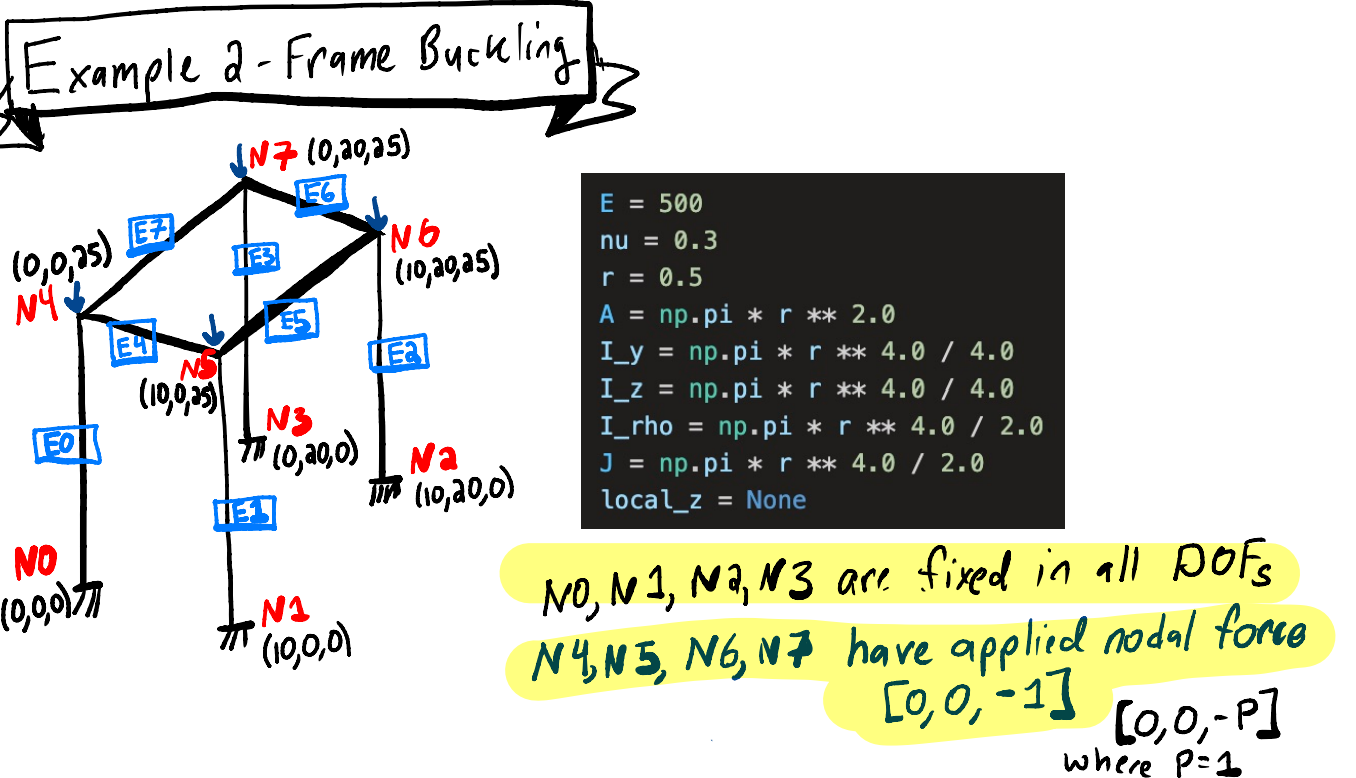 Example 2 - Frame Buckling
N7 (0,20,25)
E6
E7
N6
(10,20,25)
E3
(0,0,25)
N4
E5
E4
E2
N5
(10,0,25)
N3
(0,20,0)
E0
N2
(10,20,0)
E1
N0
(0,0,0)
N1
(10,0,0)
E = 500
nu = 0.3
r = 0.5
A = np.pi * r ** 2.0
I_y = np.pi * r ** 4.0 / 4.0
I_z = np.pi * r ** 4.0 / 4.0
I_rho = np.pi * r ** 4.0 / 2.0
J = np.pi * r ** 4.0 / 2.0
local_z = None
N0, N1, N2, N3 are fixed in all DOFs
N4, N5, N6, N7 have applied nodal force
[0, 0, -1]
[0, 0, -P]
where P=1